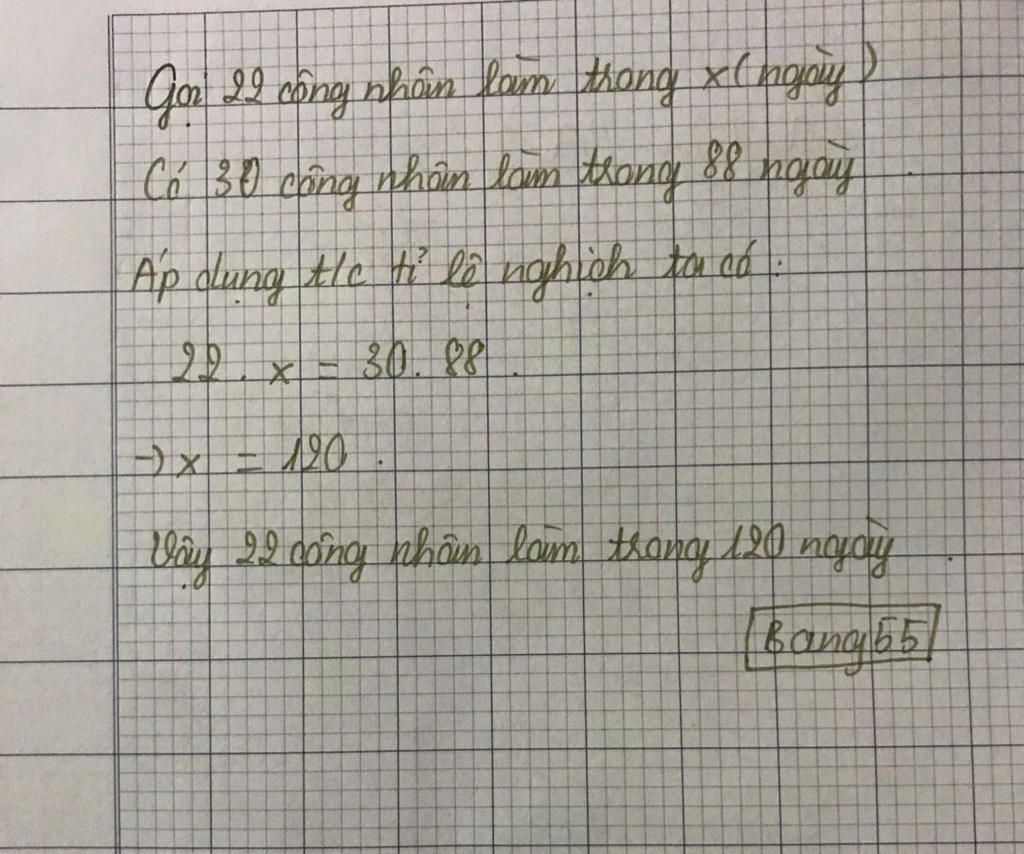 Gọi 22 công nhân làm trong x (ngày)
Có 30 công nhân làm trong 88 ngày.
Áp dụng t/c tỉ lệ nghịch ta có:
22. x = 30. 88.
→ x = 120.
Vậy 22 công nhân làm trong 120 ngày.
Bang55